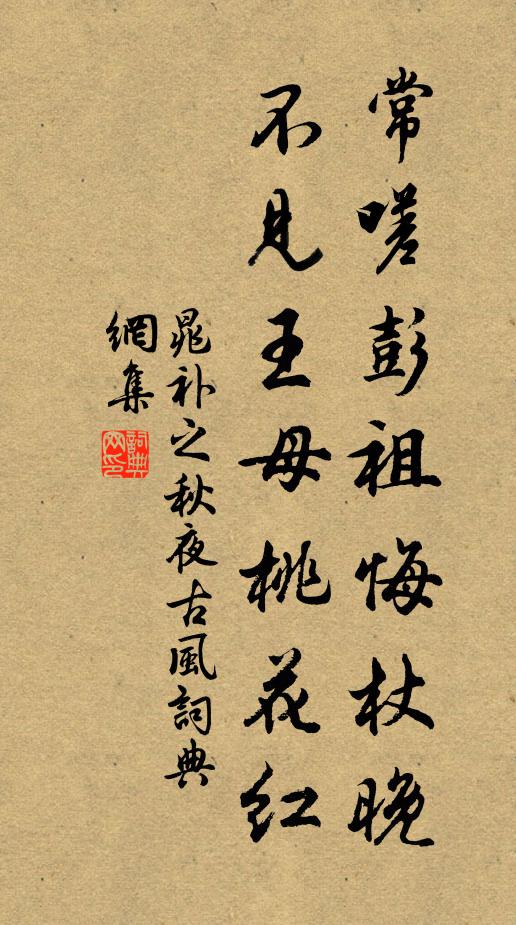 常嗟彭祖悔杖晚
不見王母桃花红
晁补之秋夜古風詞典
網集
詞典網印